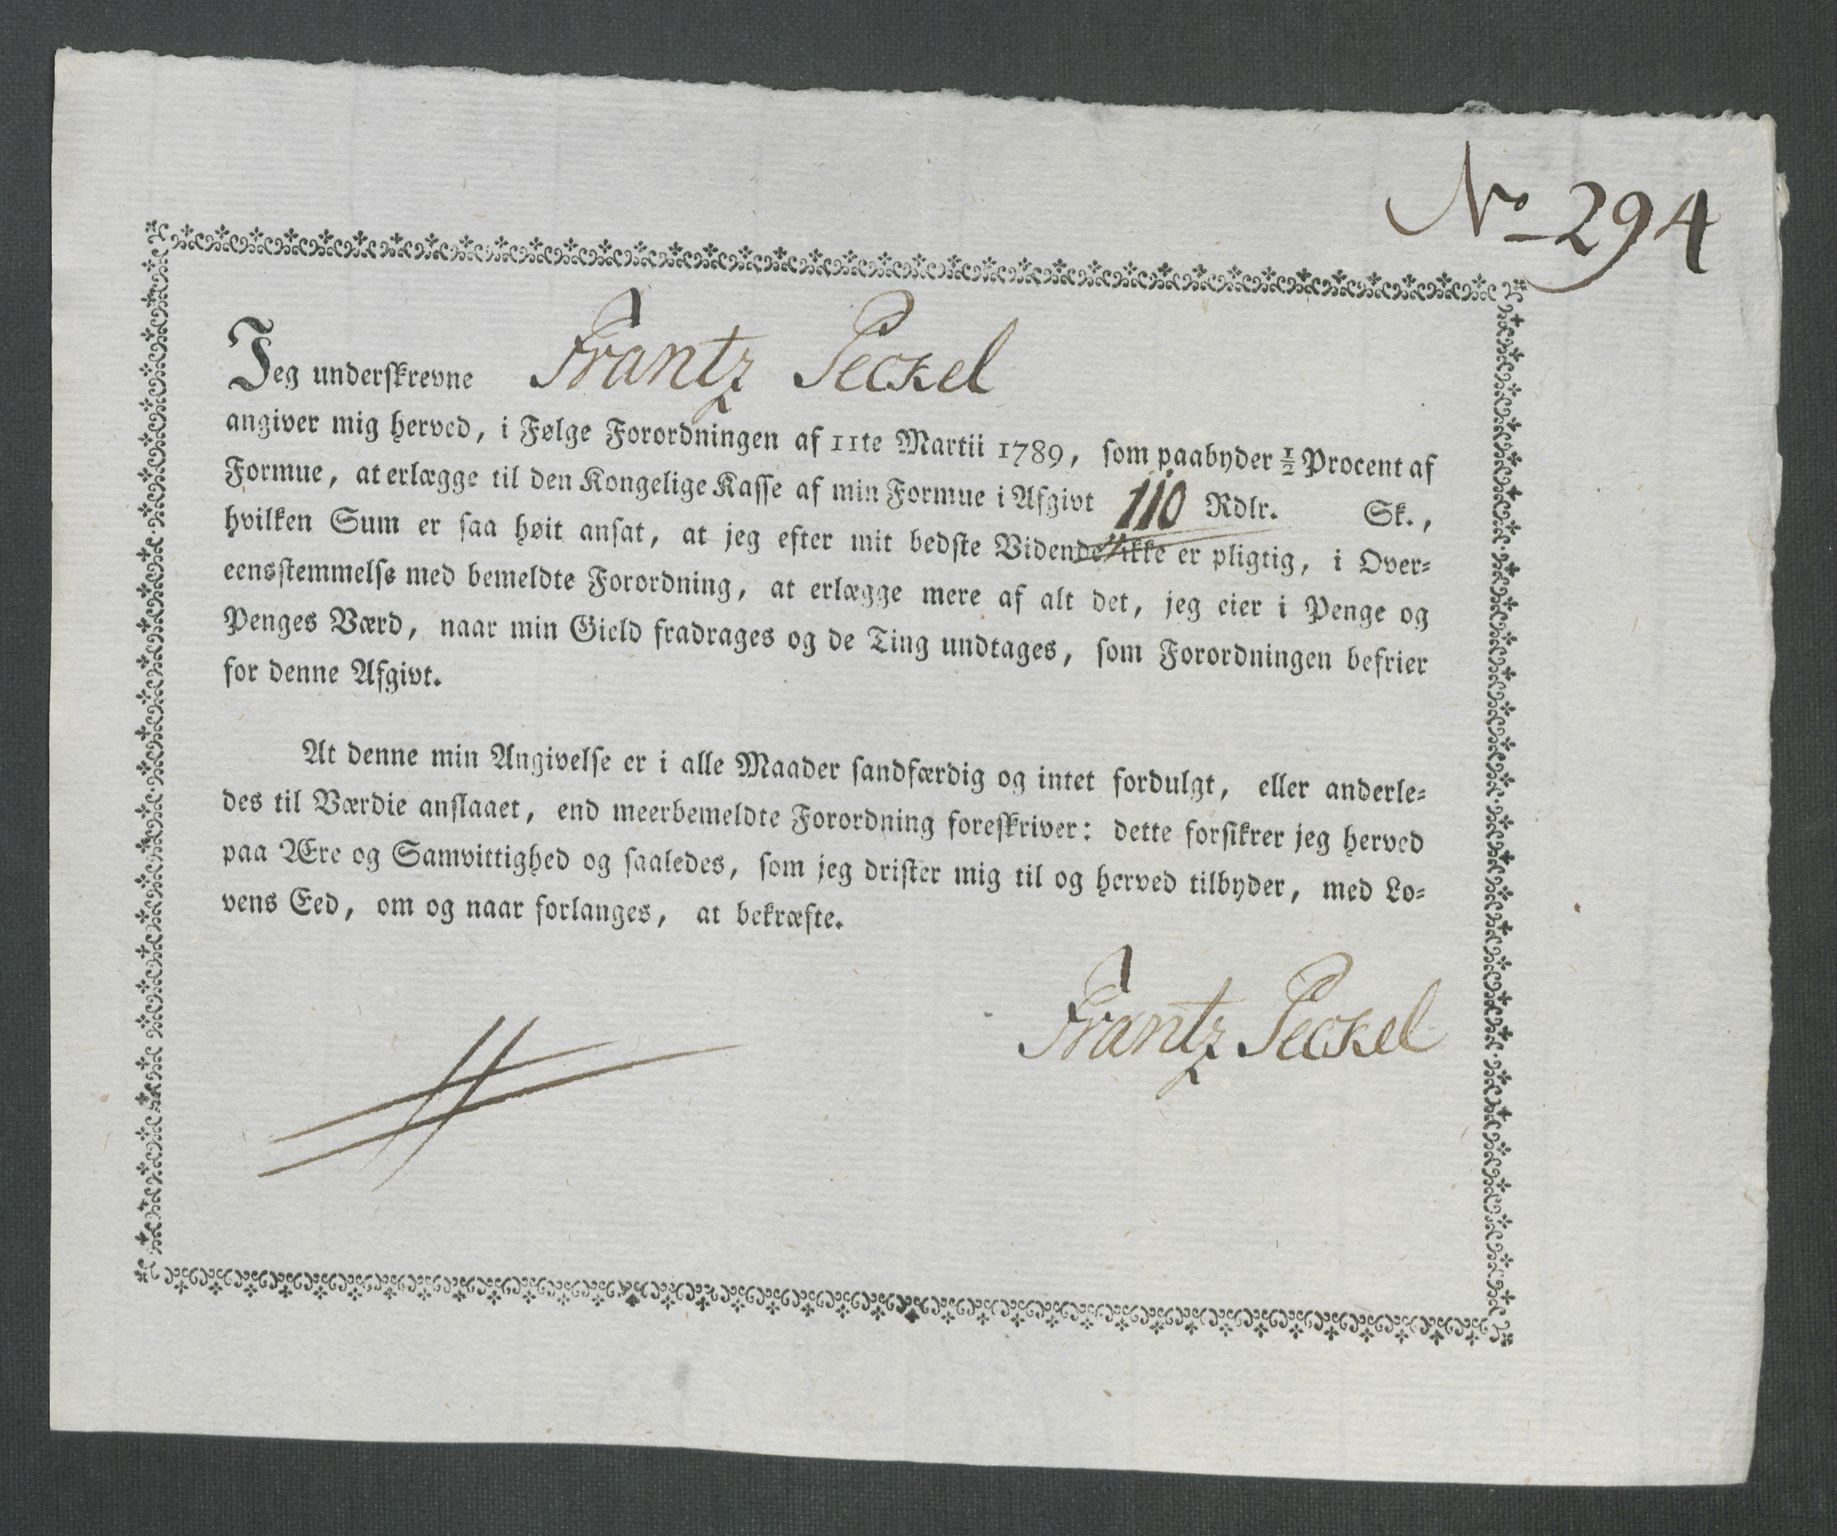 No 294
Jeg underskrevne Frantz Peckel
angiver mig herved, i Følge Forordningen af 11te Martii 1789, som paabyder ½ Procent af
Formue, at erlægge til den Kongelige Kasse af min Formue i Afgivt 110 Rdlr. Sk.,
hvilken Sum er saa høit ansat, at jeg efter mit bedste Vidende ikke er pligtig, i Over-
eensstemmelse med bemeldte Forordning, at erlægge mere af alt det, jeg eier i Penge og
Penges Værd, naar min Gield fradrages og de Ting undtages, som Forordningen befrier
for denne Afgivt.
At denne min Angivelse er i alle Maader sandfærdig og intet fordulgt, eller anderle-
des til Værdie anslaaet, end meerbemeldte Forordning foreskriver: dette forsikrer jeg herved
paa Ære og Samvittighed og saaledes, som jeg drister mig til og herved tilbyder, med Lo-
vens Eed, om og naar forlanges, at bekræfte.
Frantz Peckel